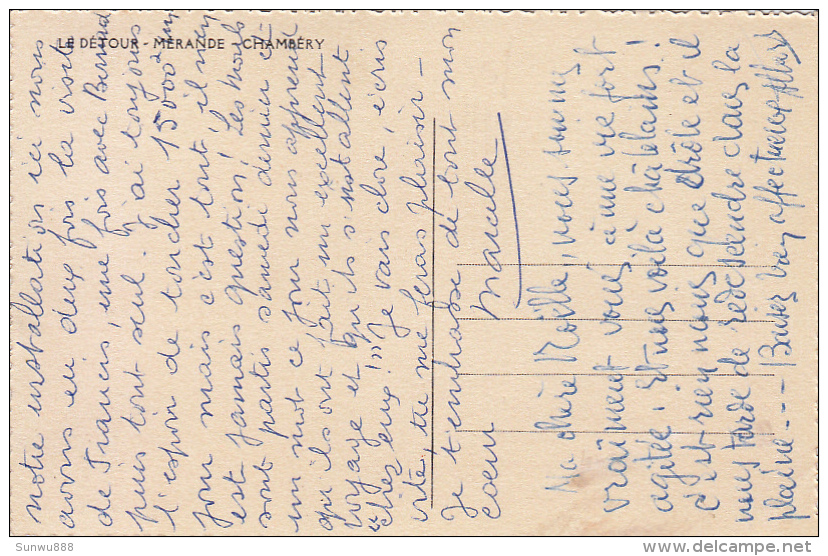 LE DÉTOUR - MÉRANDE - CHAMBÉRY
notre installation ici nous
avons eu deux fois la visite
de Francis, une fois avec Bernard
puis tout seul. J'ai toujours
l'espoir de toucher 15000 un
jour mais c'est tout, il n'en
est jamais question! Les Morls
sont partis samedi dernier et
un mot ce jour nous apprend
qu'ils ont fait un excellent
voyage et qu'ils s'installent
"chez eux"!!! Je vais clore, écris
vite, tu me feras plaisir -
Je t'embrasse de tout mon
coeur Marcelle
Ma chère Noëlle, nous
vraiment vous à une vie fort
agitée! Et nous voilà châtelains!
c'est rien moins que drôle et il
nous tarde de redescendre dans la
plaine... Baisers bien affectueux
Sunwu888
delcampe.net